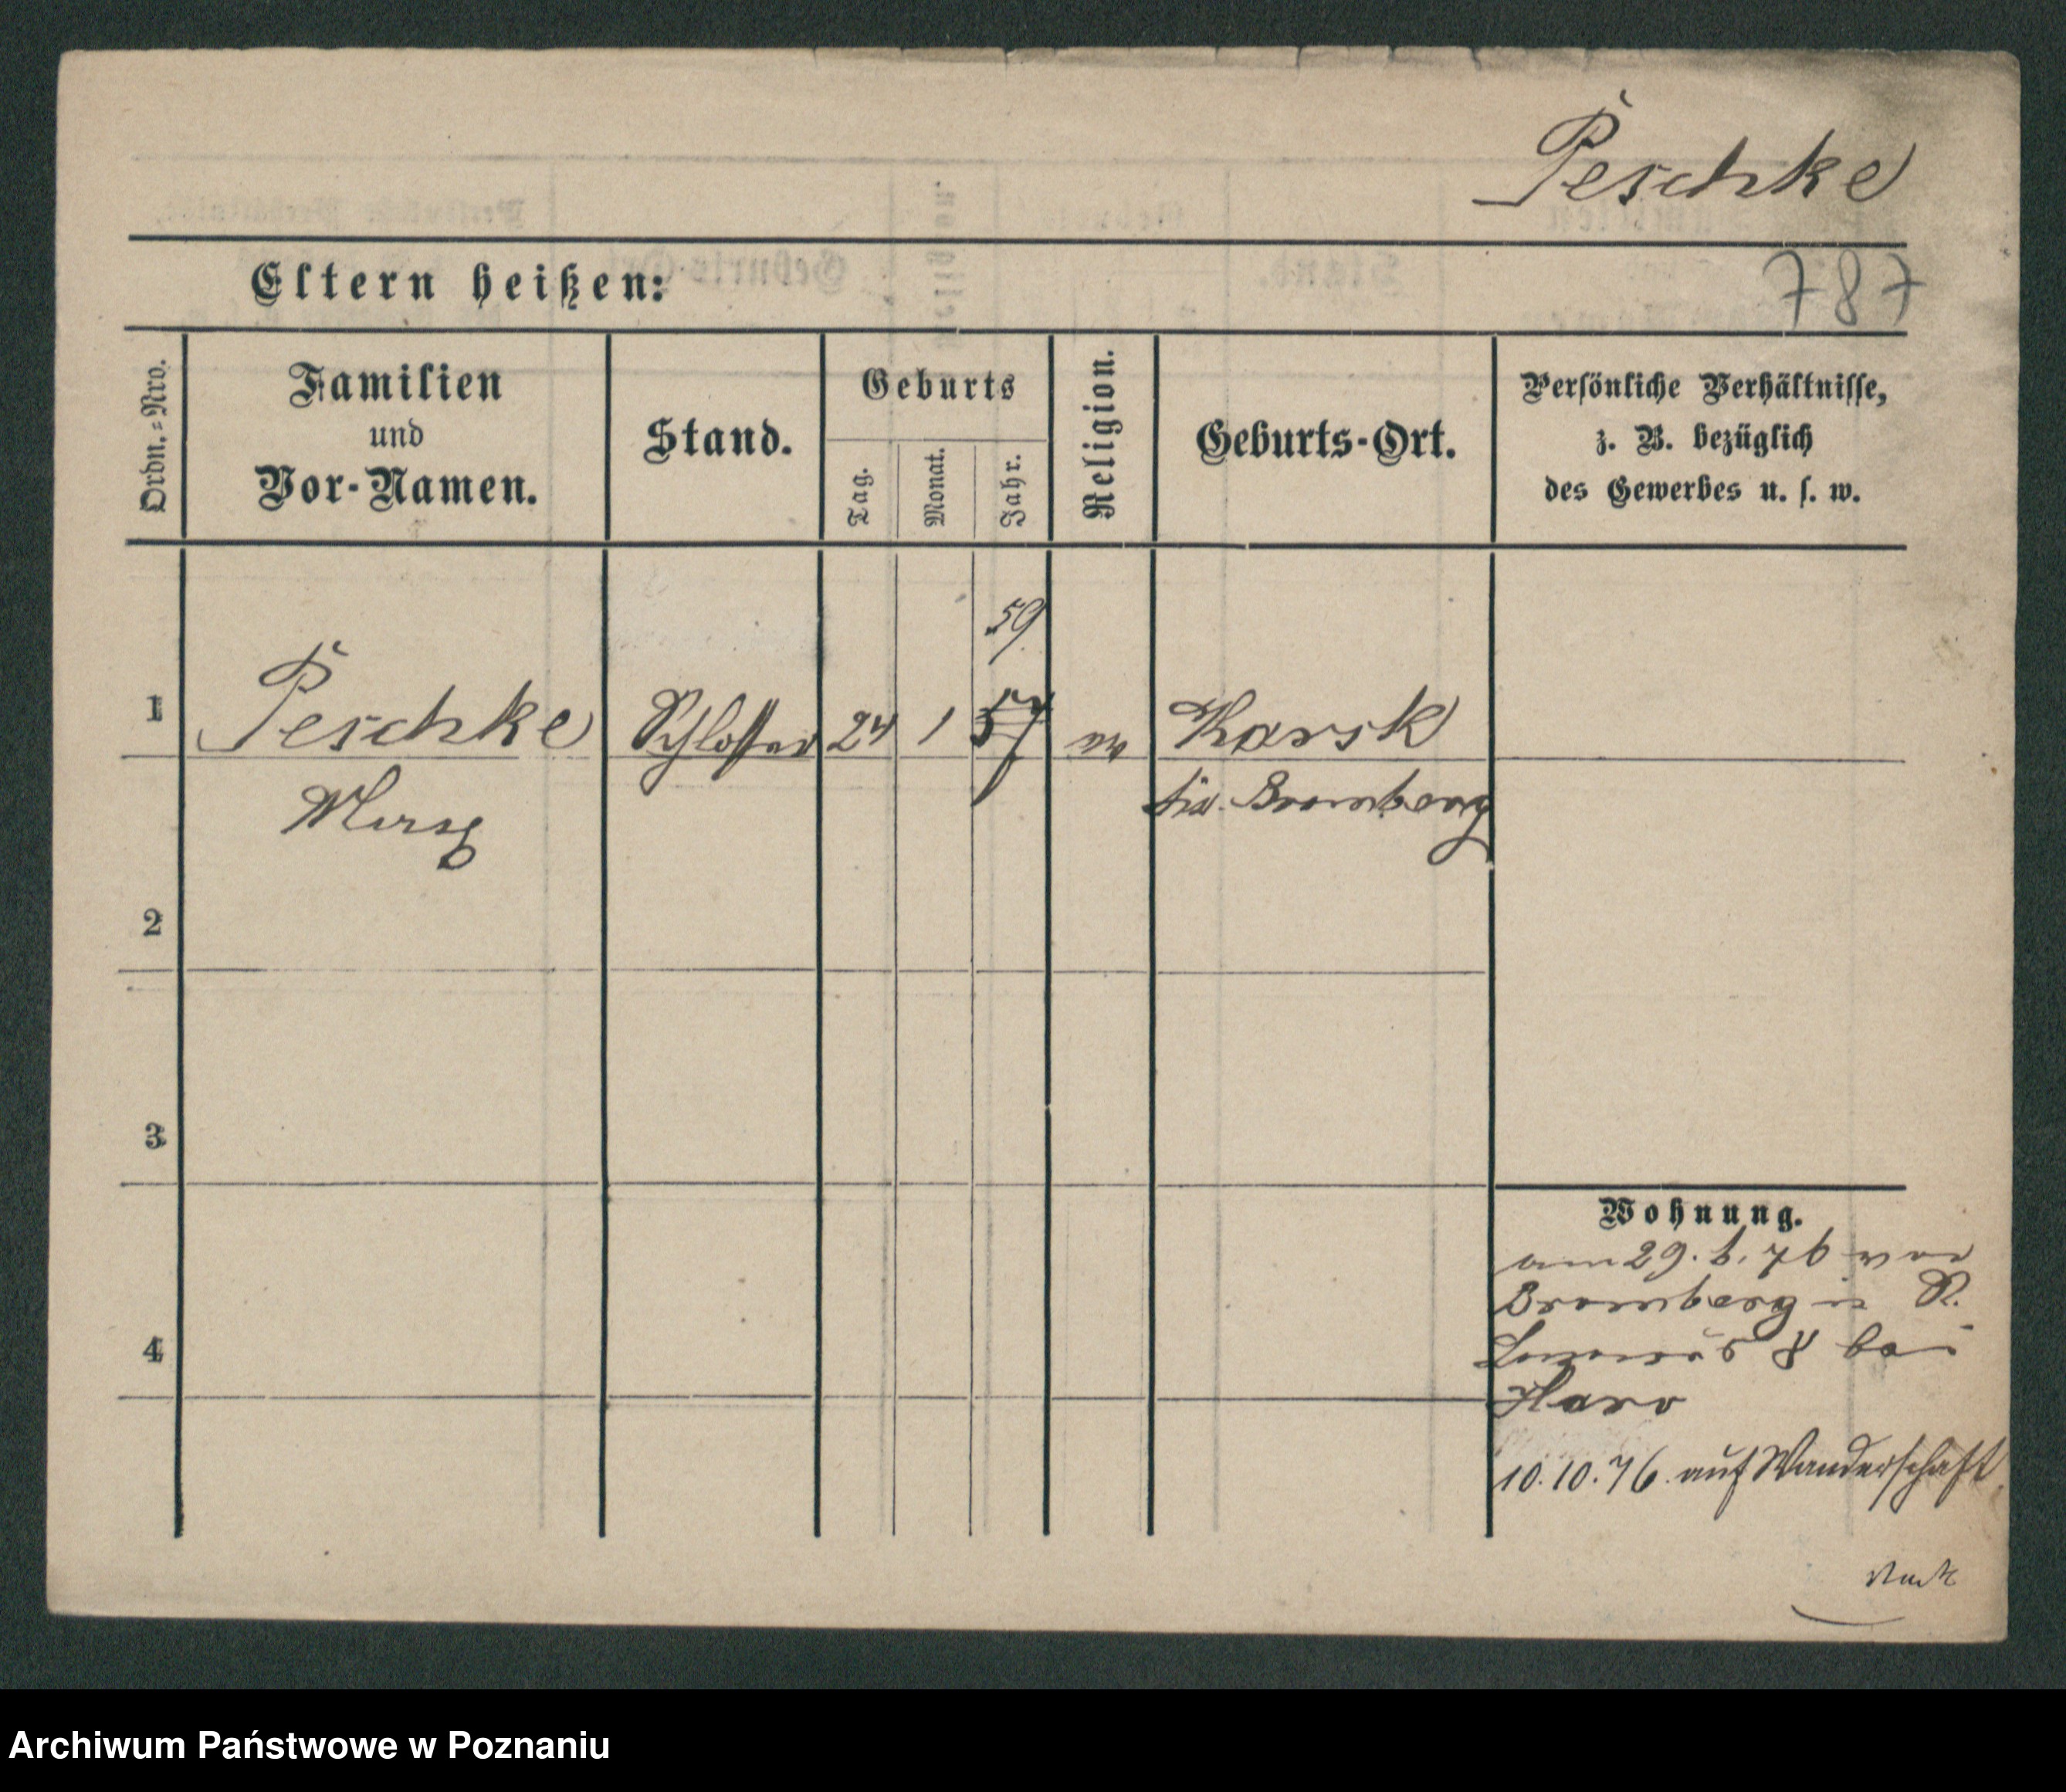 Peschke
Eltern heißen:
787
Ordn.-Nro.
Familien
und
Vor-Namen.
Stand.
Geburts
Tag.
Monat.
Jahr.
Religion.
Geburts-Ort.
Persönliche Verhältnisse,
z. B. bezüglich
des Gewerbes u. s. w.
59
1
Peschke
Schlosser
24
1
57
ev
Karsk
Bromberg
2
3
Wohnung.
am 29. 9. 76 von
Bromberg in
4
bei
10. 10. 76. auf Wanderschaft
Archiwum Państwowe w Poznaniu